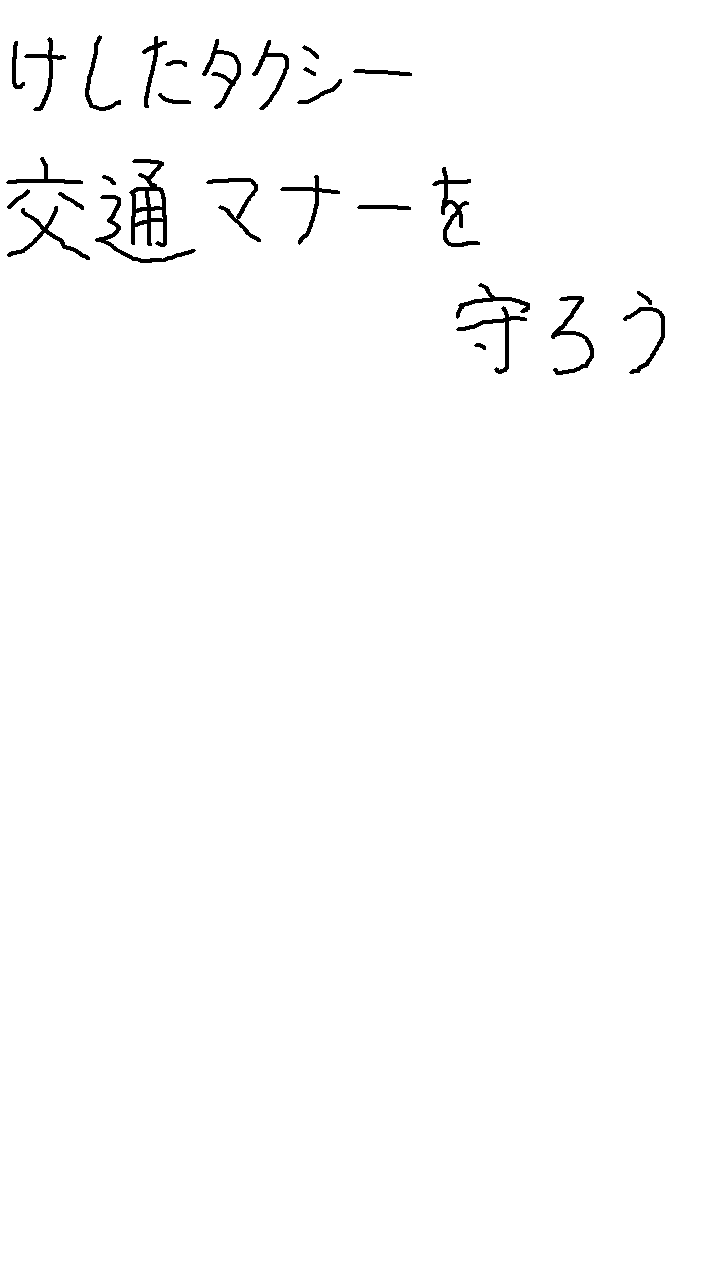 けしたタクシー
交通マナーを
守ろう